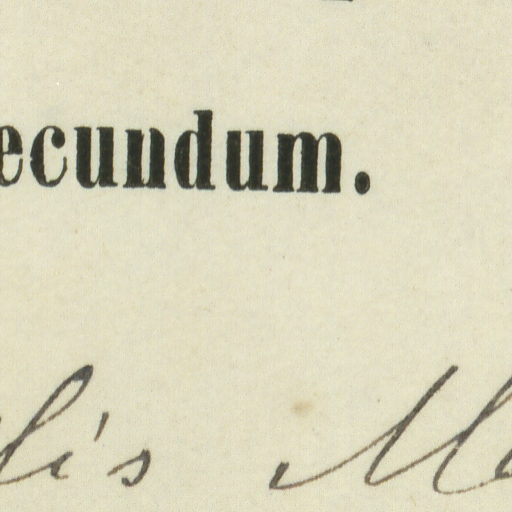 ecundum.
lis M